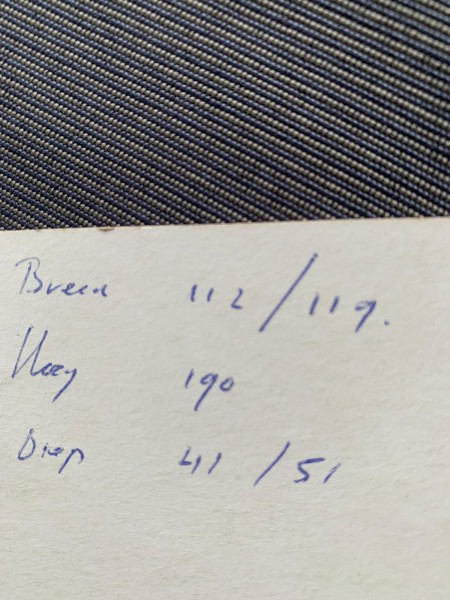 Breed 112 / 119.
Hoog 190
Diep 41 / 51